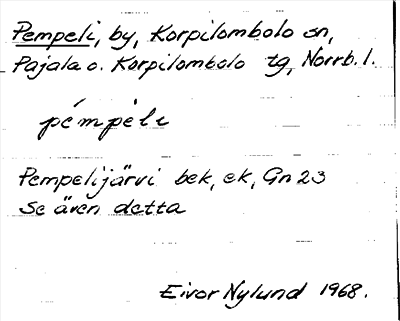 Pempeli, by, Korpilombolo sn,
Pajala o. Korpilombolo tg, Norrb. l.
pémpèli
Pempelijärvi bek, ek, Gn 23
Se även detta
Eivor Nylund 1968.